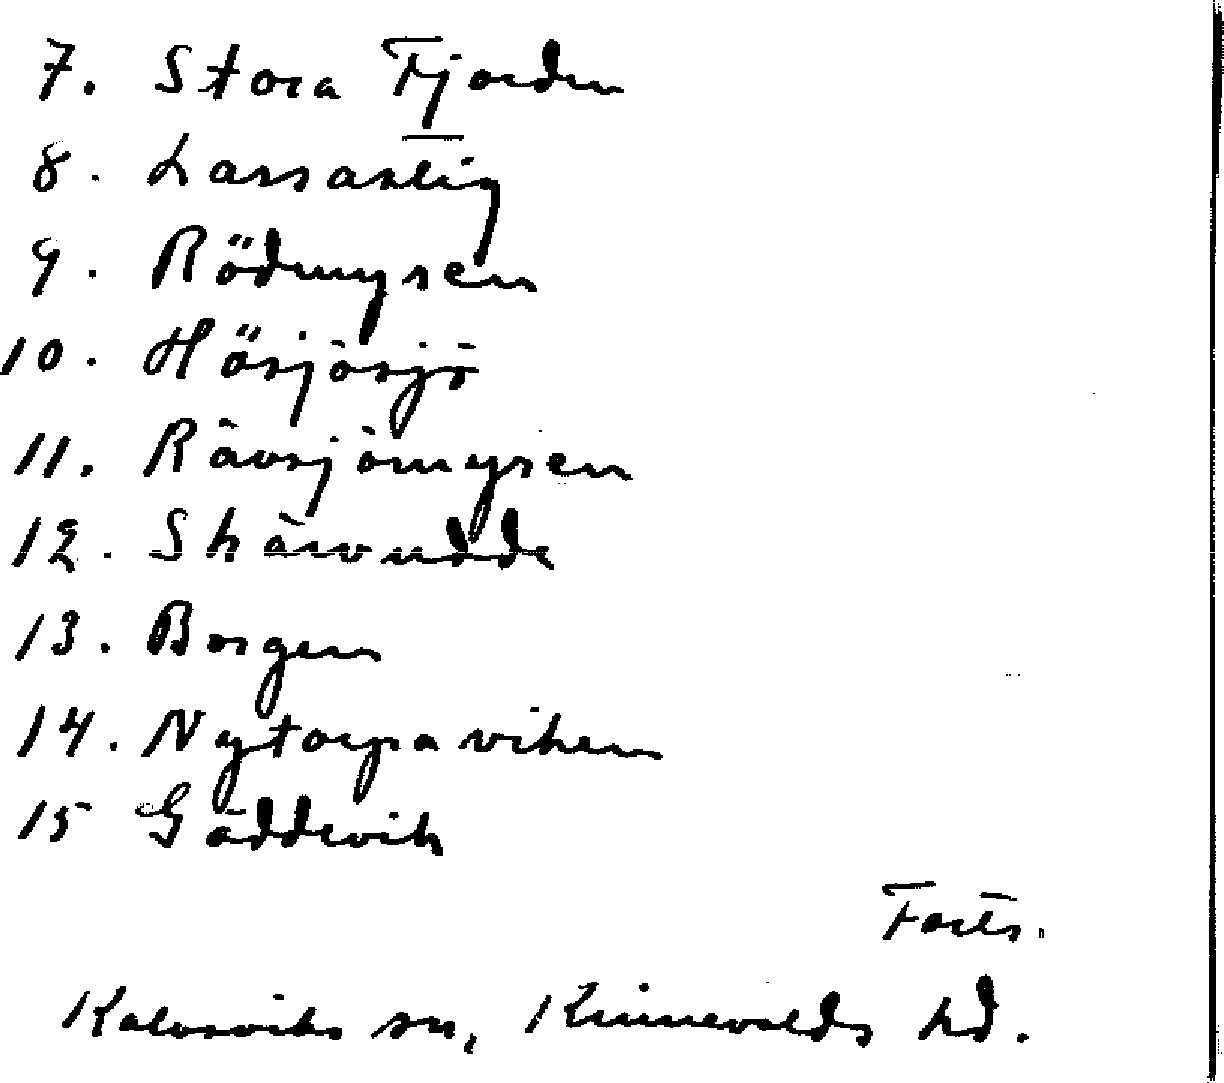 7. Stora Fjorden
8. Lassaslig
9. Rödmysen
10. Hösjösjö
11. Rävsjömysen
12. Skärvudde
13. Borgen
14. Nytorpaviken
15 Gäddevik
Forts.
Kalvsviks sn, Kinnevalds hd.